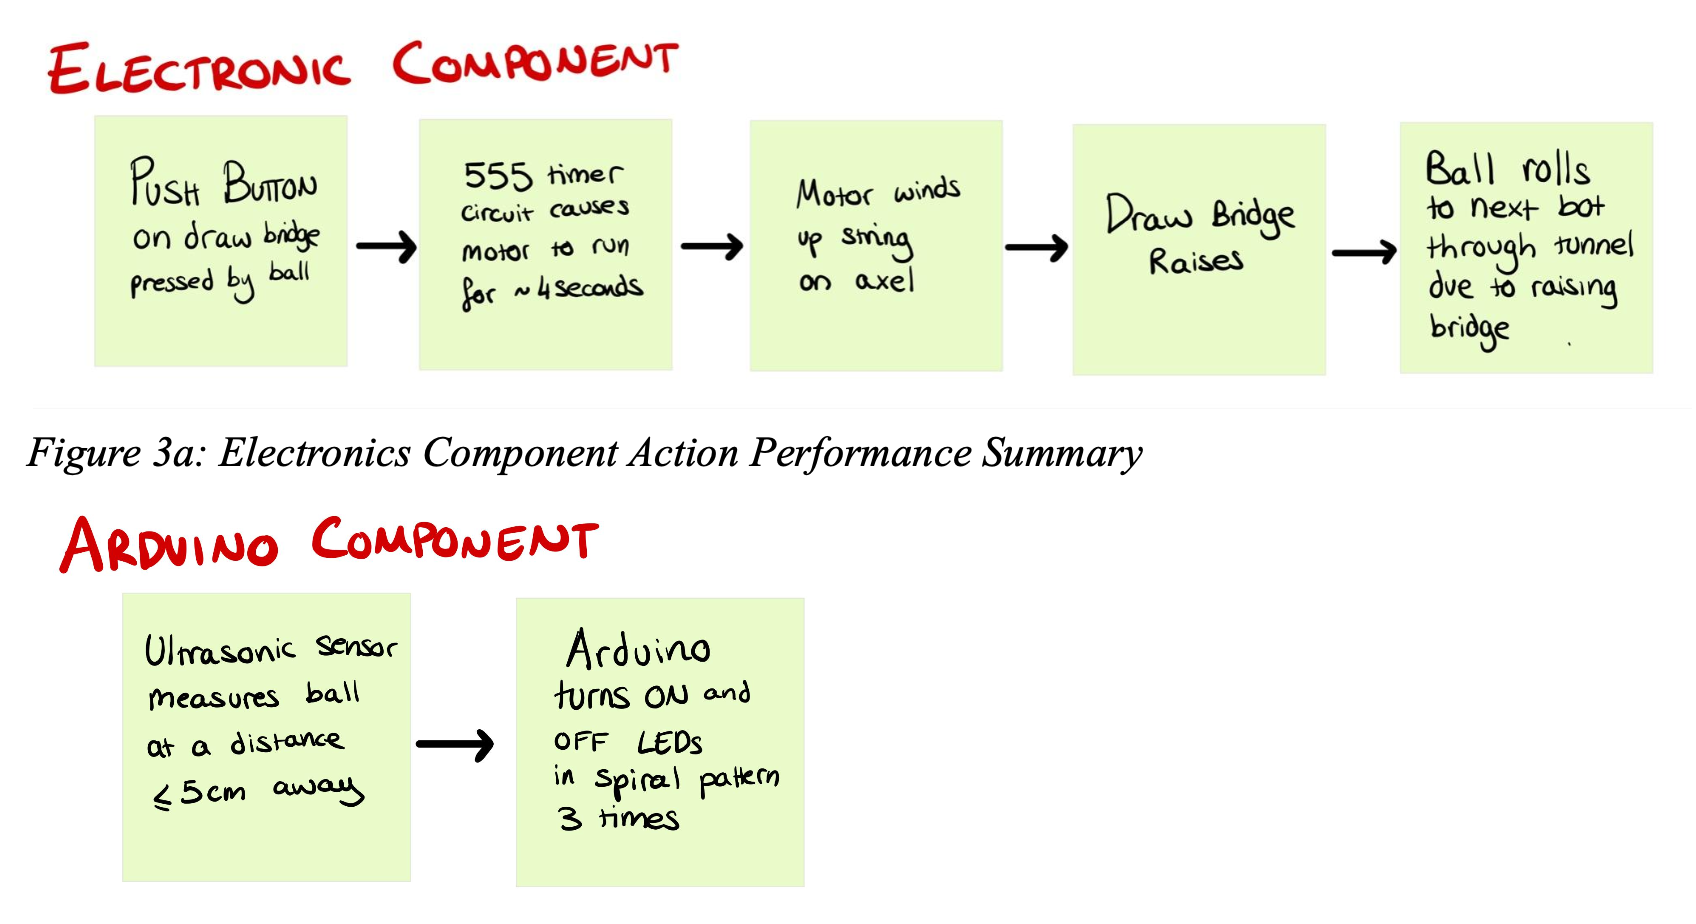 ELECTRONIC COMPONENT
PUSH BUTTON
on draw bridge
pressed by ball
555 timer
circuit causes
motor to run
for ~4seconds
Motor winds
up string
on axel
Draw Bridge
Raises
Ball rolls
to next bot
through tunnel
due to raising
bridge
Figure 3a: Electronics Component Action Performance Summary
ARDUINO COMPONENT
Ultrasonic sensor
measures ball
at a distance
≤5cm away
Arduino
turns ON and
OFF LEDs
in spiral pattern
3 times